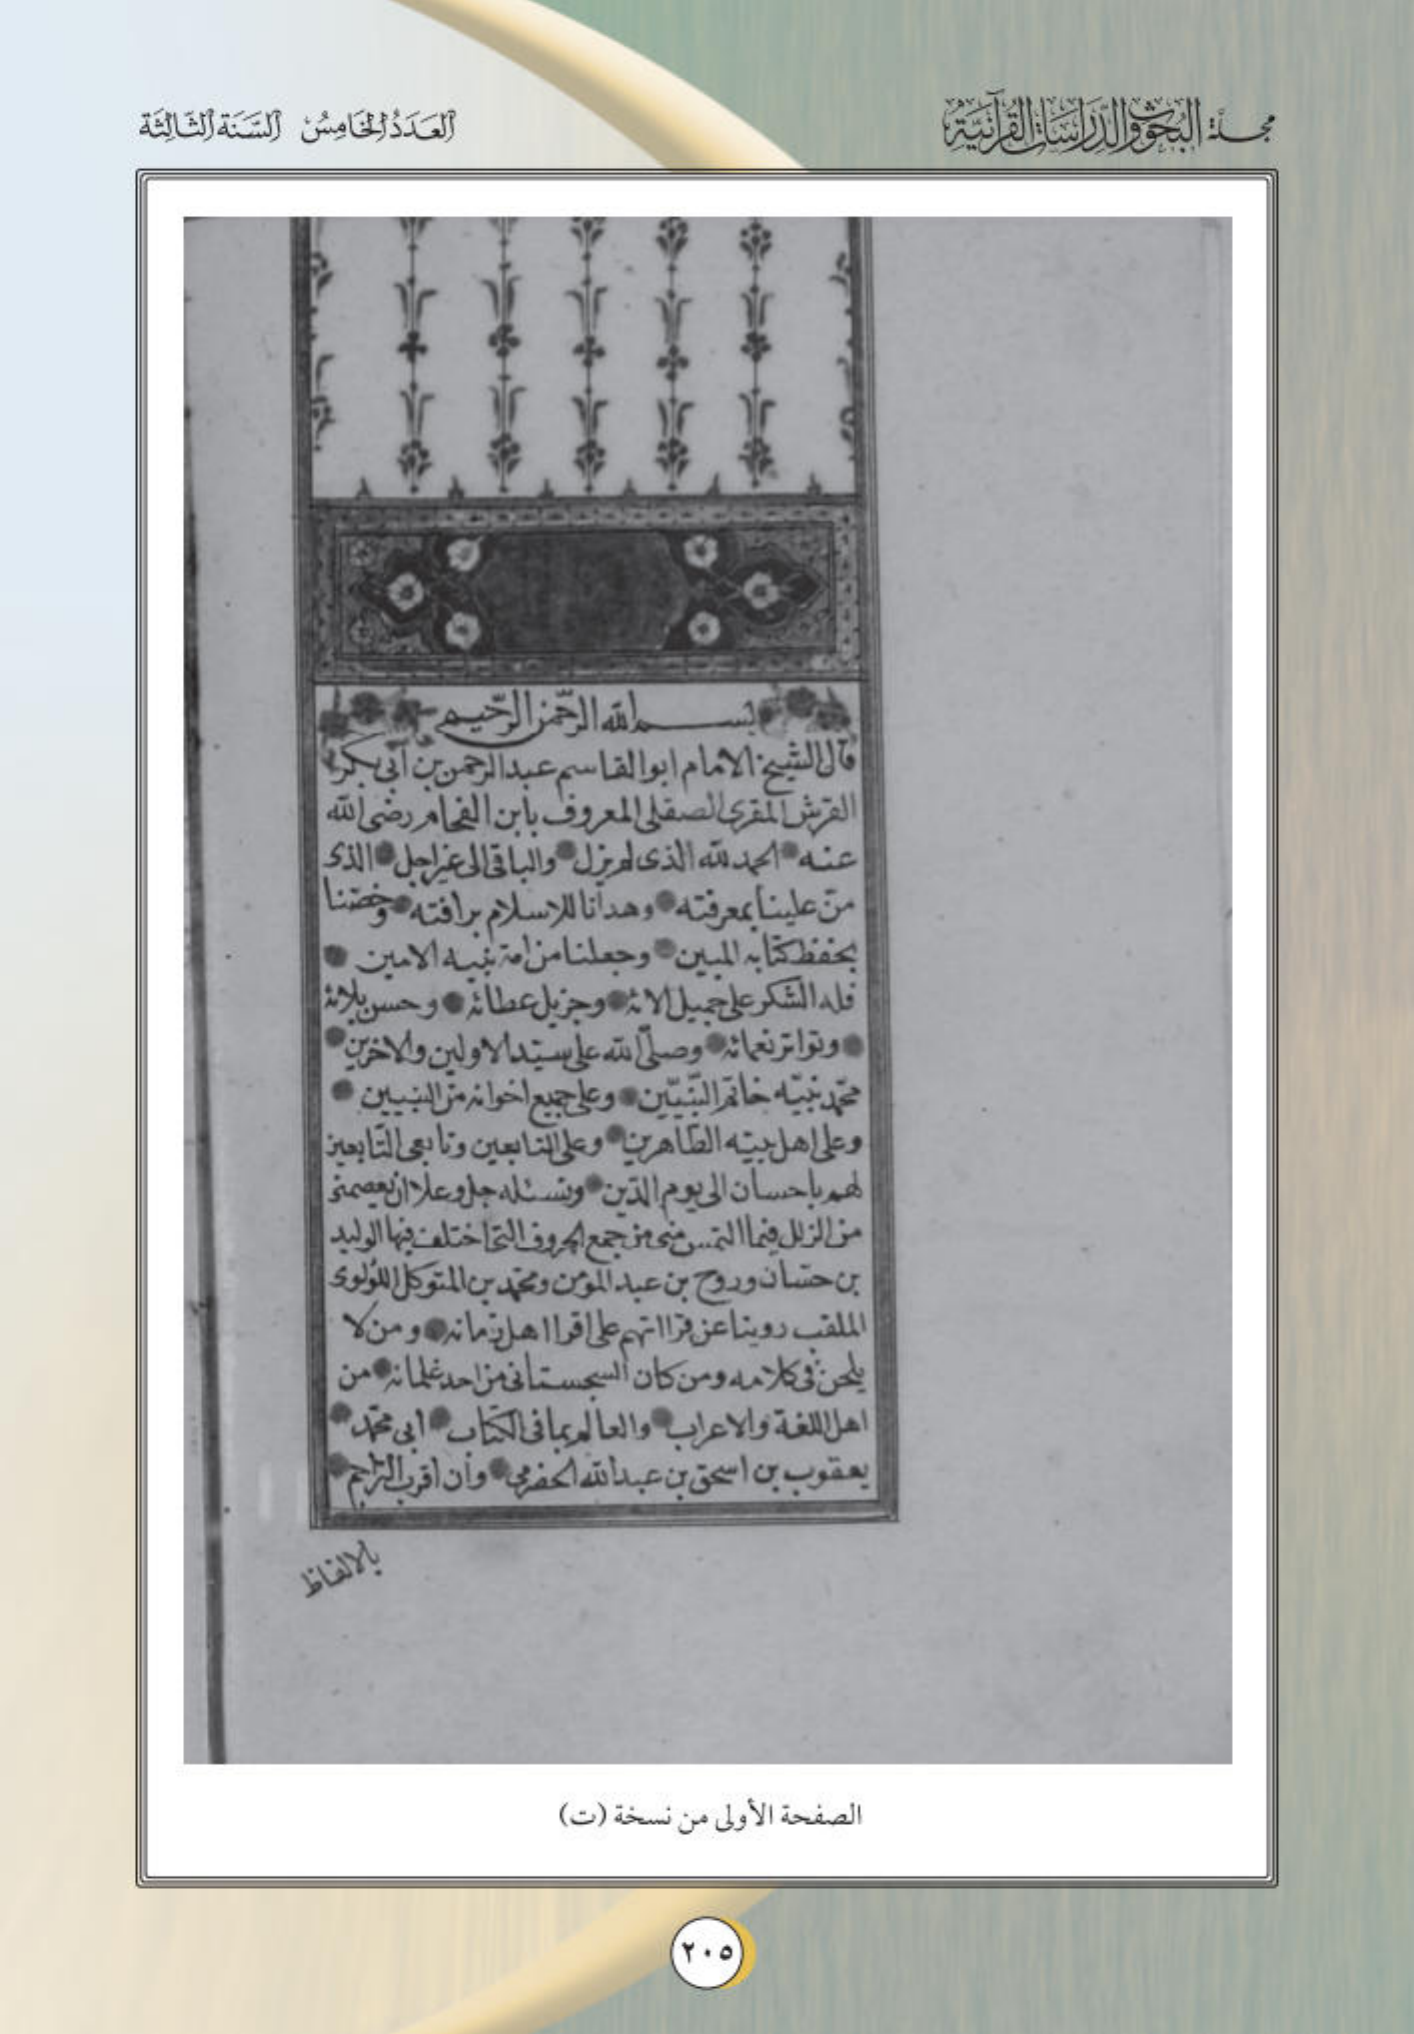 مجلة البحوث والدراسات القرآنية
العدد الخامس السنة الثالثة
بسم الله الرّحمن الرّحيم
قال الشيخ الامام ابو القاسم عبد الرحمن بن أبي بكر
القرشى المقرى الصقلى المعروف بابن الفحام رضى الله
عنه الحمد لله الذى لم يزل والباقى الى غير اجل الذى
منّ علينا بمعرفته وهدانا للاسلام برافته وخصّنا
بحفظ كتابه المبين وجعلنا من امة نبيه الامين
فله الشكر على جميل الائه وجزيل عطائه وحسن بلائه
وتواتر نعمائه وصلّى الله على سيّد الاولين والاخرين
محمّد نبيّه خاتم النّبيّين وعلى جميع اخوانه من النبيين
وعلى اهل بيته الطاهرين وعلى التابعين وتابعى التّابعين
لهم باحسان الى يوم الدّين ونسئله جل وعلا ان يعصمنى
من الزلل فيما التمس منى من جمع الحروف التى اختلف فيها الوليد
بن حسّان وروح بن عبد المؤمن ومحمّد بن المتوكل اللؤلوى
الملقب رويتا عن قرااتهم على اقرا اهل زمانه ومن لا
يلحن فى كلامه ومن كان السجستانى من احد غلمانه من
اهل اللغة والاعراب والعالم بما فى الكتاب ابى محمّد
يعقوب بن اسحق بن عبد الله الحضرمى وان اقرب التراجم
بالالفاظ
الصفحة الأولى من نسخة (ت)
٢٠٥